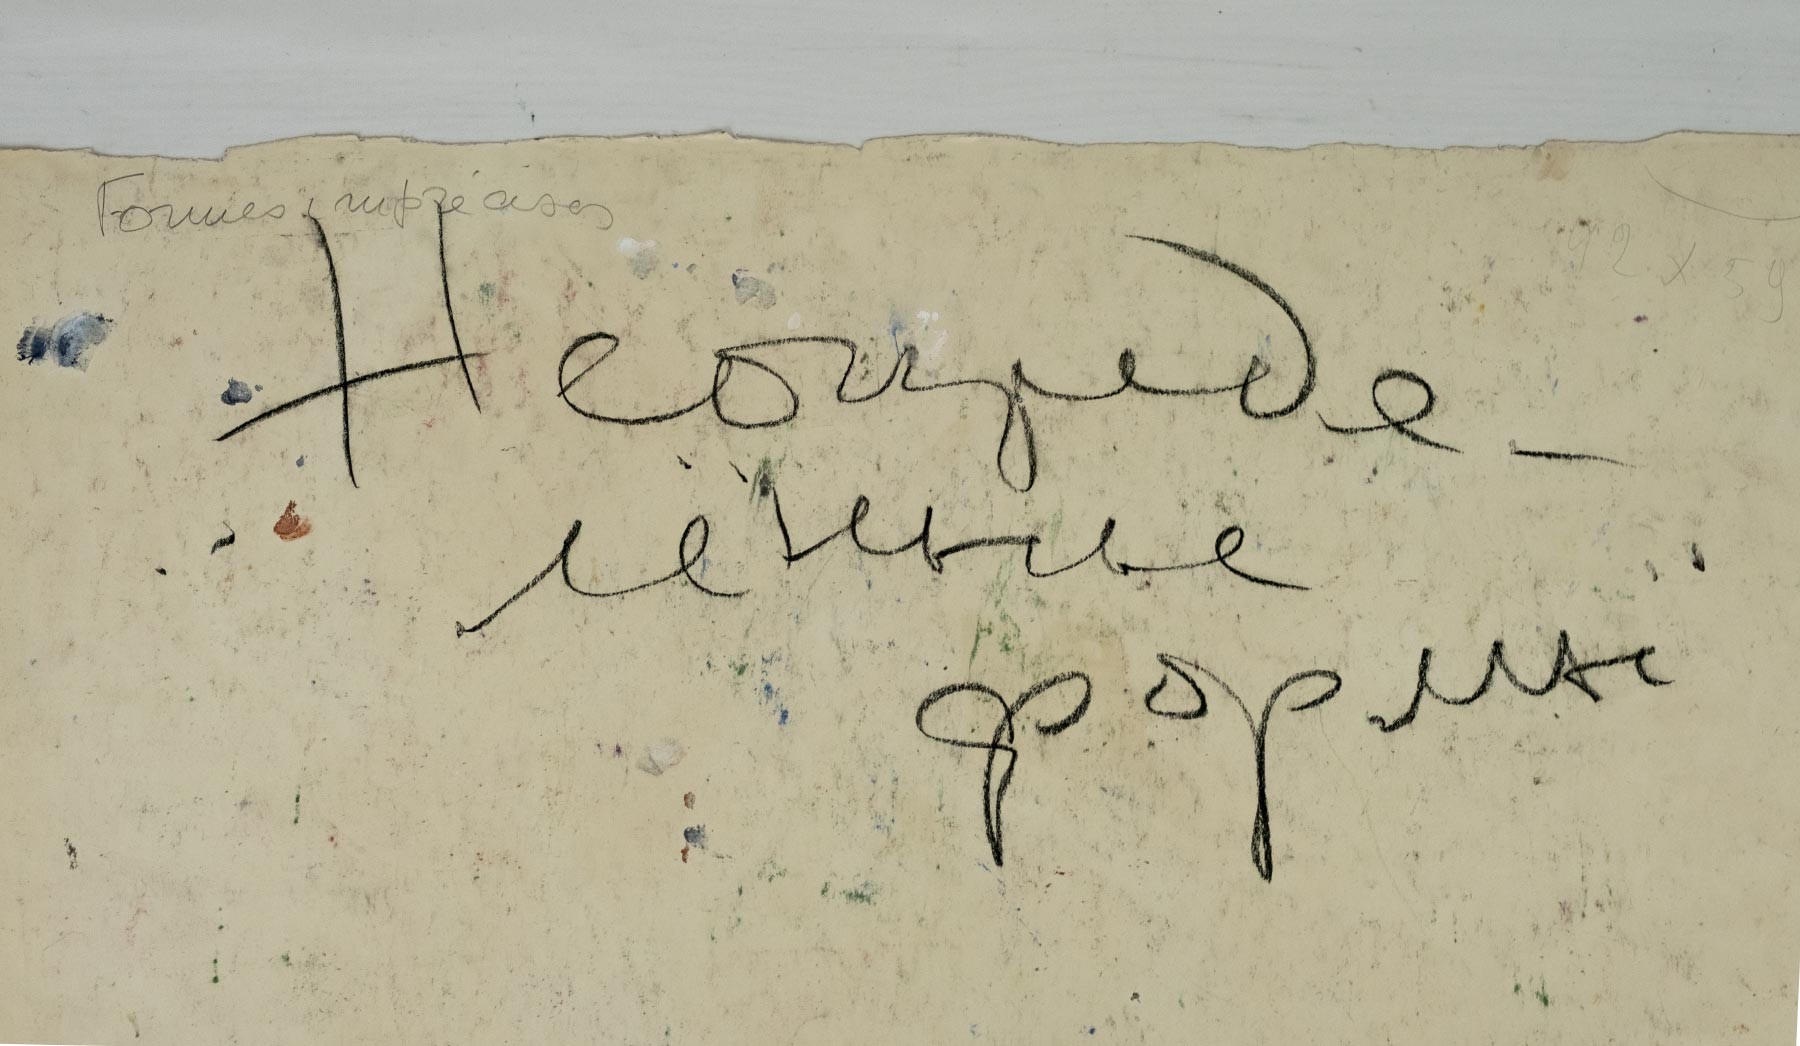 Formes imprécises
42 x 59
Неопреде-
лёные
формы